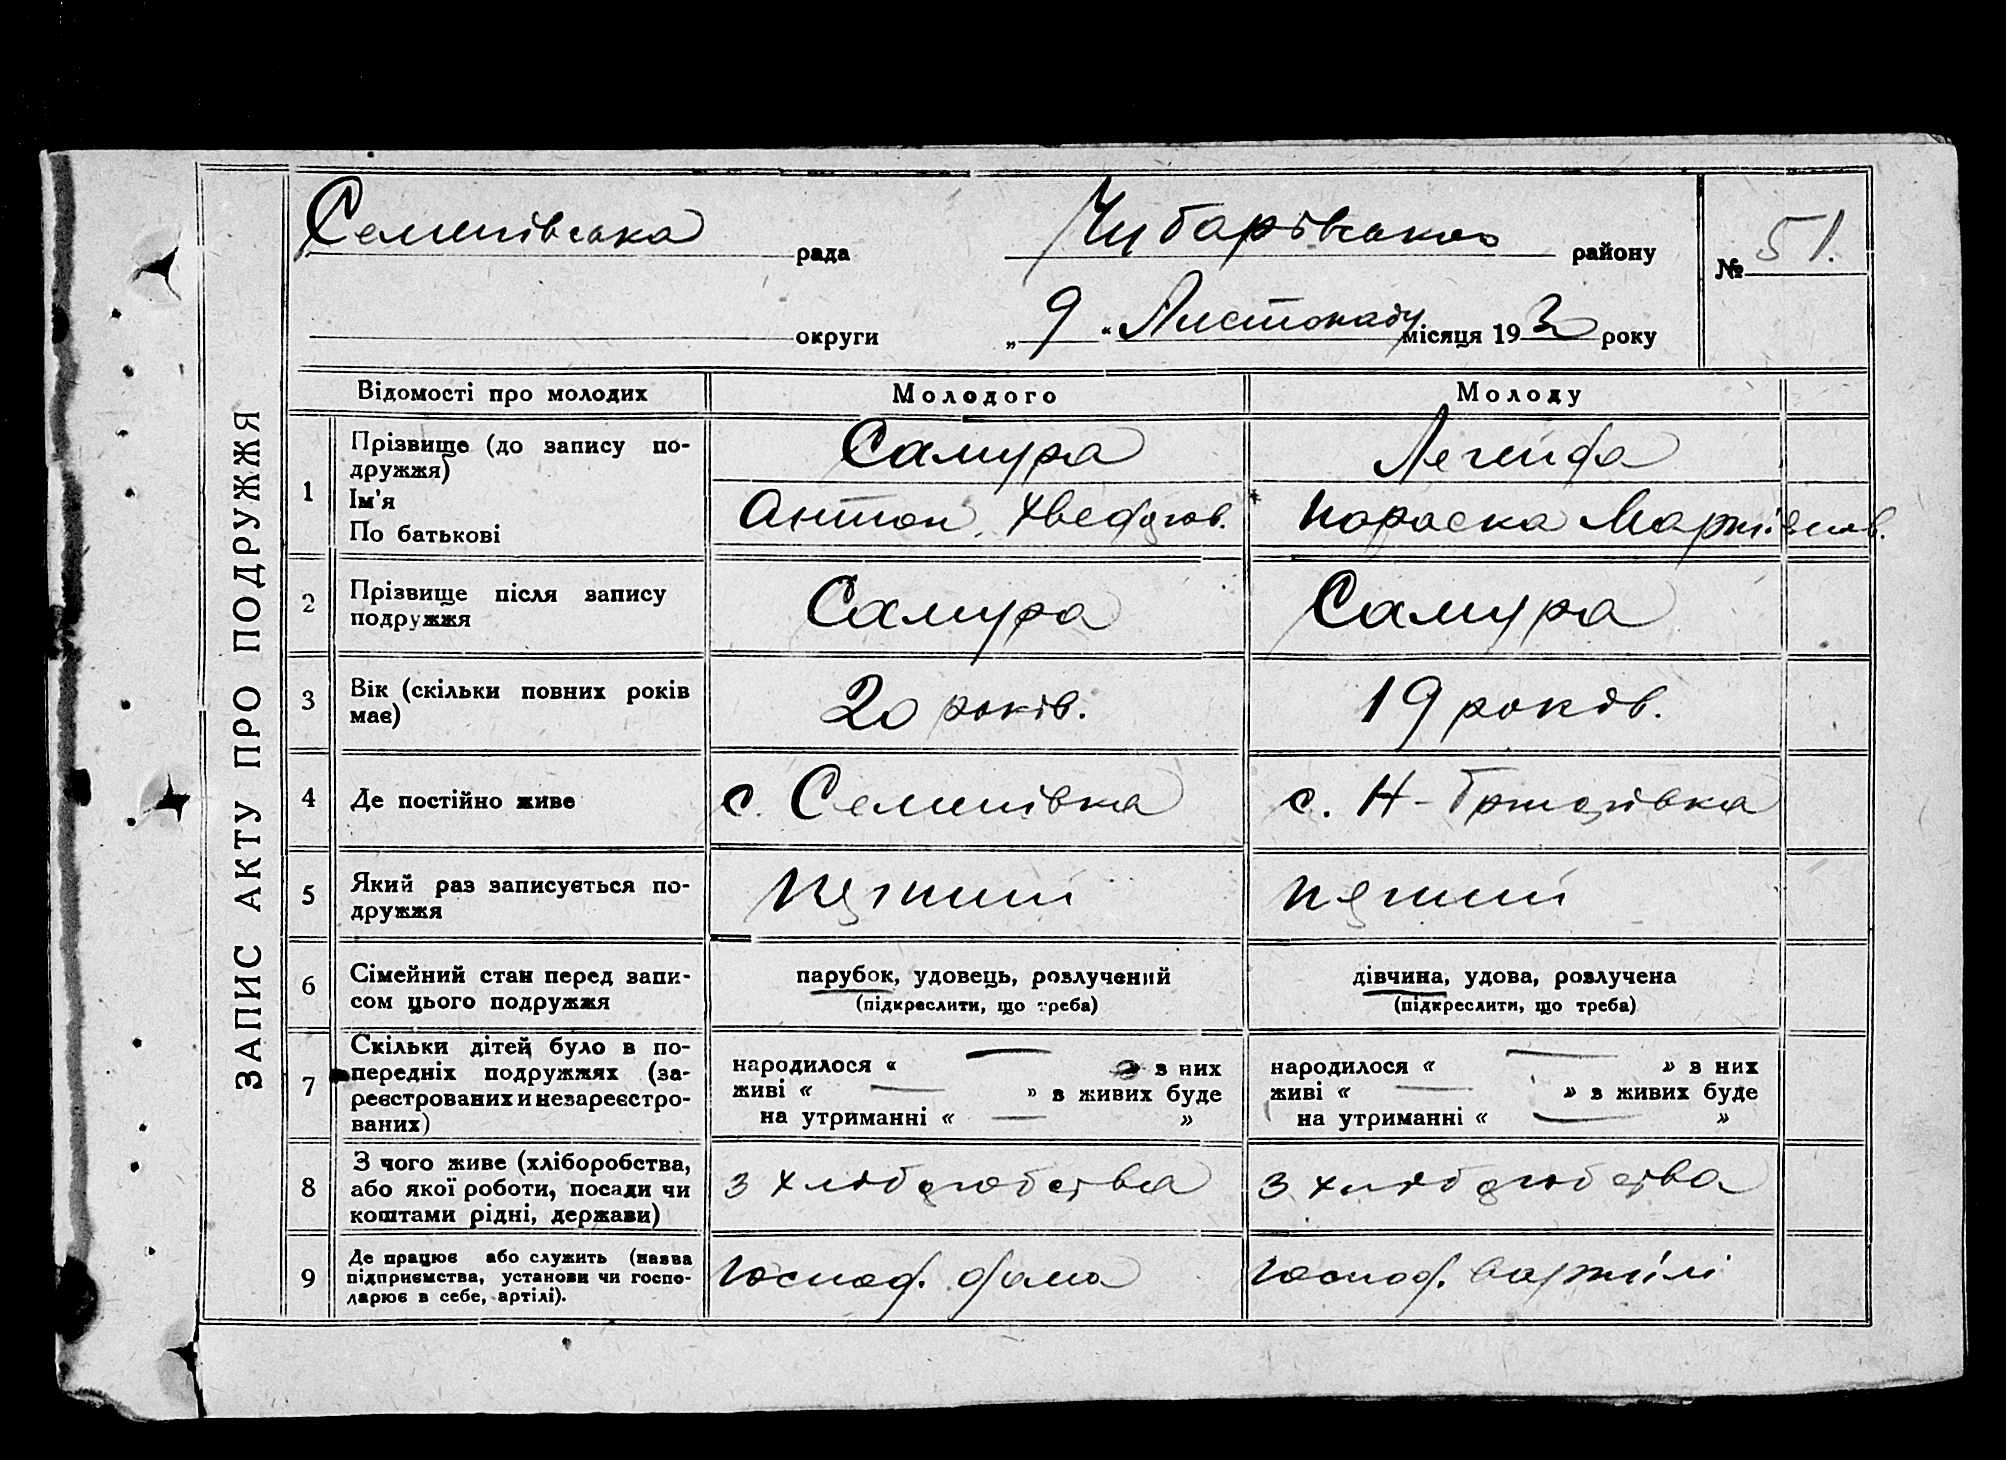 ЗАПИС АКТУ ПРО ПОДРУЖЖЯ
Семенівська рада Чубарівського району № 51.
округи „9“ Листопаду місяця 193 року
Відомості про молодих Молодого Молоду
1 Прізвище (до запису по-
дружжя) Самура Легейда
Ім'я
По батькові Антон Хведоров. Параска Мартинов.
2 Прізвище після запису
подружжя Самура Самура
3 Вік (скільки повних років
має) 20 років. 19 років.
4 Де постійно живе с. Семенівка с. Н-Григорівка
5 Який раз записується по-
дружжя перший перший
6 Сімейний стан перед запи-
сом цього подружжя
парубок, удовець, розлучений
(підкреслити, що треба)
дівчина, удова, розлучена
(підкреслити, що треба)
7 Скільки дітей було в по-
передніх подружжях (за-
реєстрованих и незареєстро-
ваних)
народилося « — » з них
живі « — » з живих буде
на утриманні « — »
народилося « — » з них
живі « — » з живих буде
на утриманні « — »
8 З чого живе (хліборобства,
або якої роботи, посади чи
коштами рідні, держави)
з хліборобства з хліборобства
9 Де працює або служить (назва
підприємства, установи чи госпо-
дарює в себе, артілі).
Господ. дома Господ. в артілі